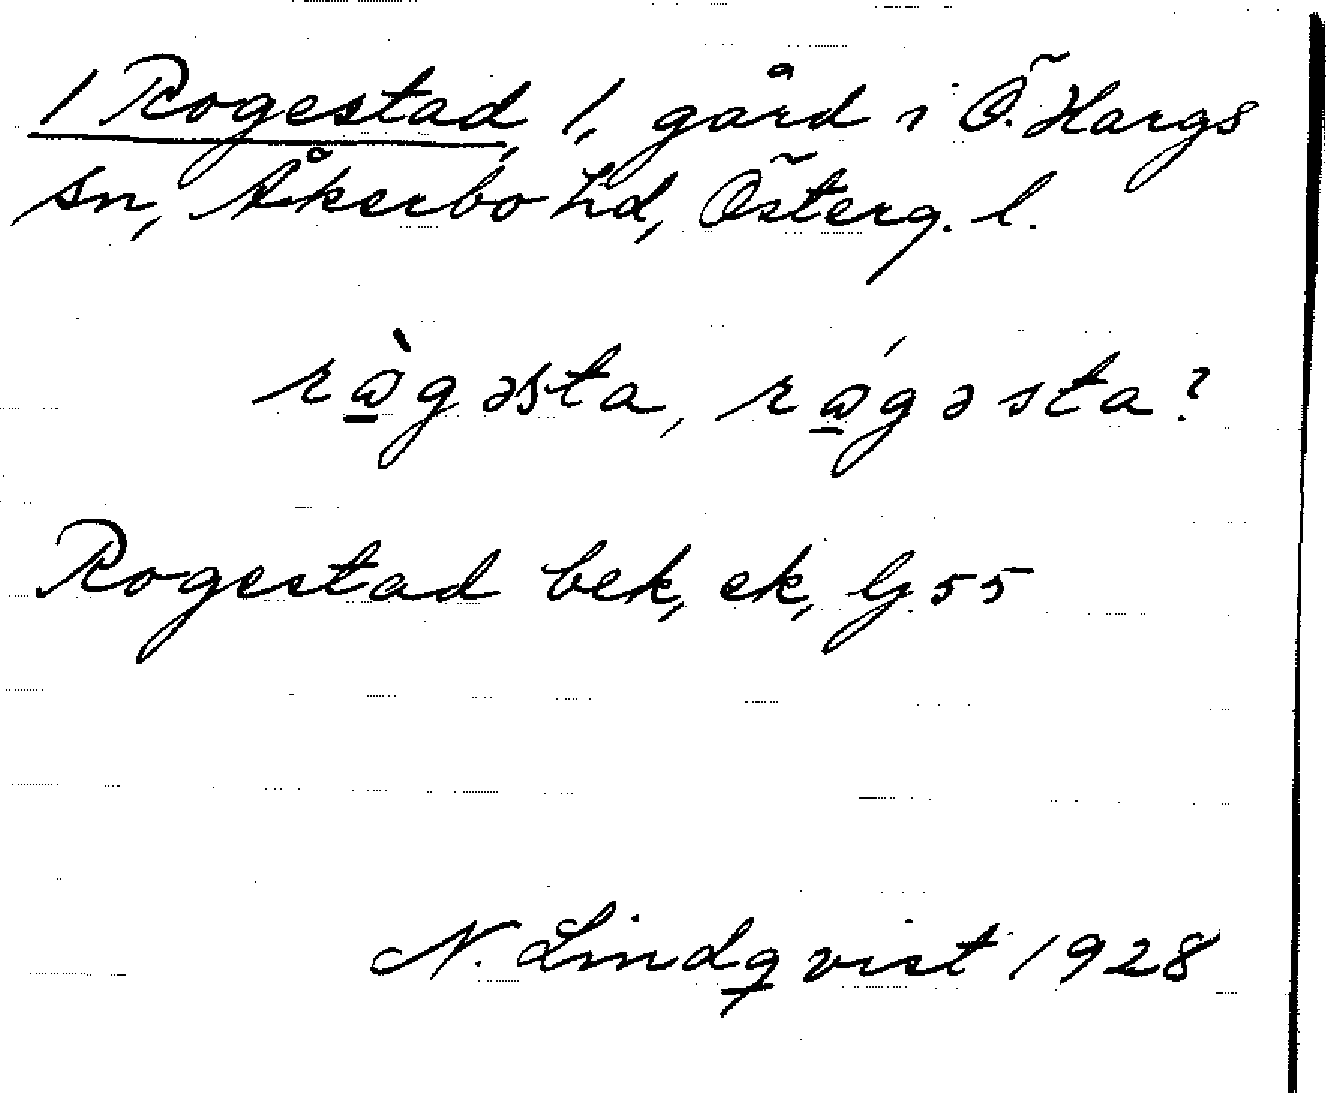 1 Rogestad, 1, gård i Ö. Hargs
sn, Åkerbo hd, Österg. l.
rὼgəsta, rώgəsta?
Rogestad bek, ek, G 55
N. Lindqvist 1928